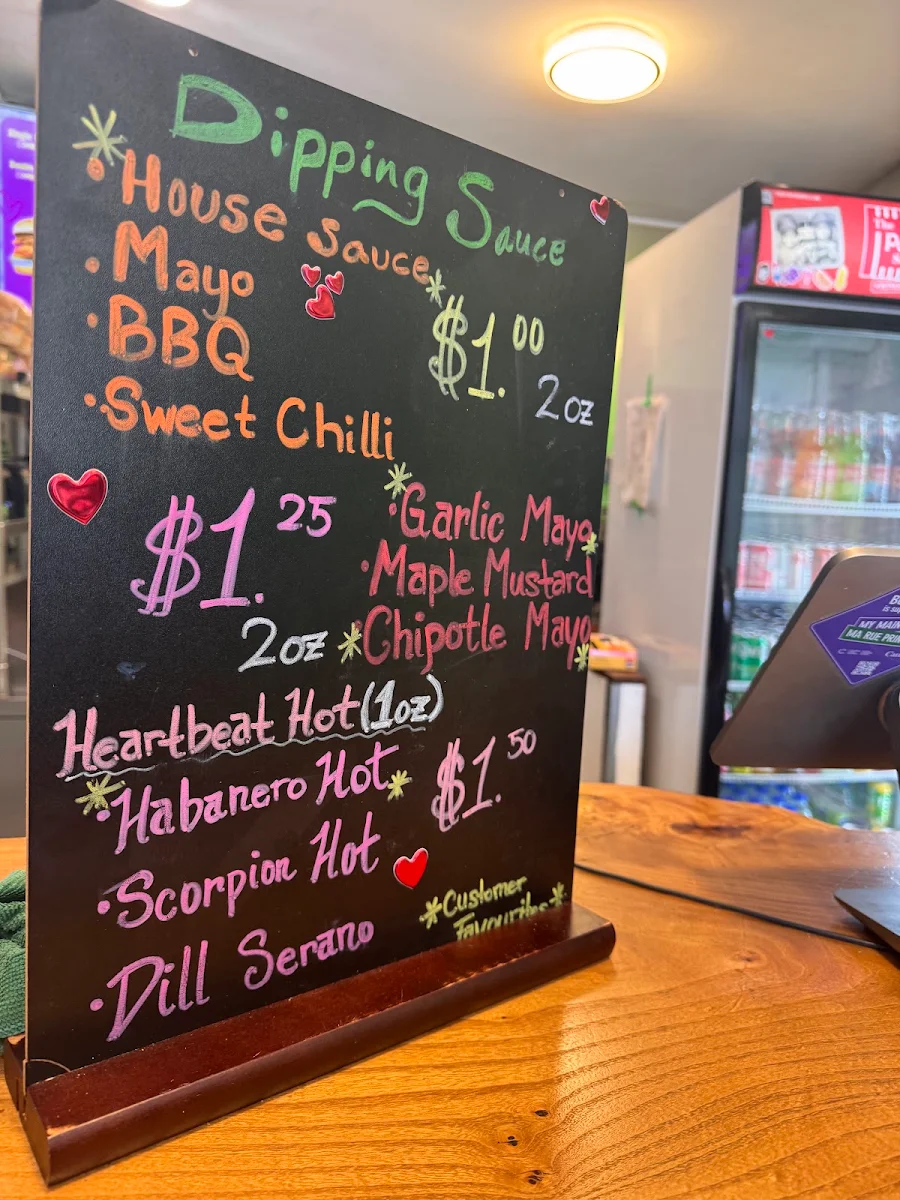 Dipping Sauce
*• House sauce*
• Mayo
• BBQ
$1.00
2oz
• Sweet Chilli
$1.25
2oz
*• Garlic Mayo*
• Maple Mustard
*• Chipotle Mayo*
Heartbeat Hot (1oz)
*• Habanero Hot*
$1.50
• Scorpion Hot
• Dill Serano
*Customer*
Favourites
MY MAIN
MA RUE PRIN